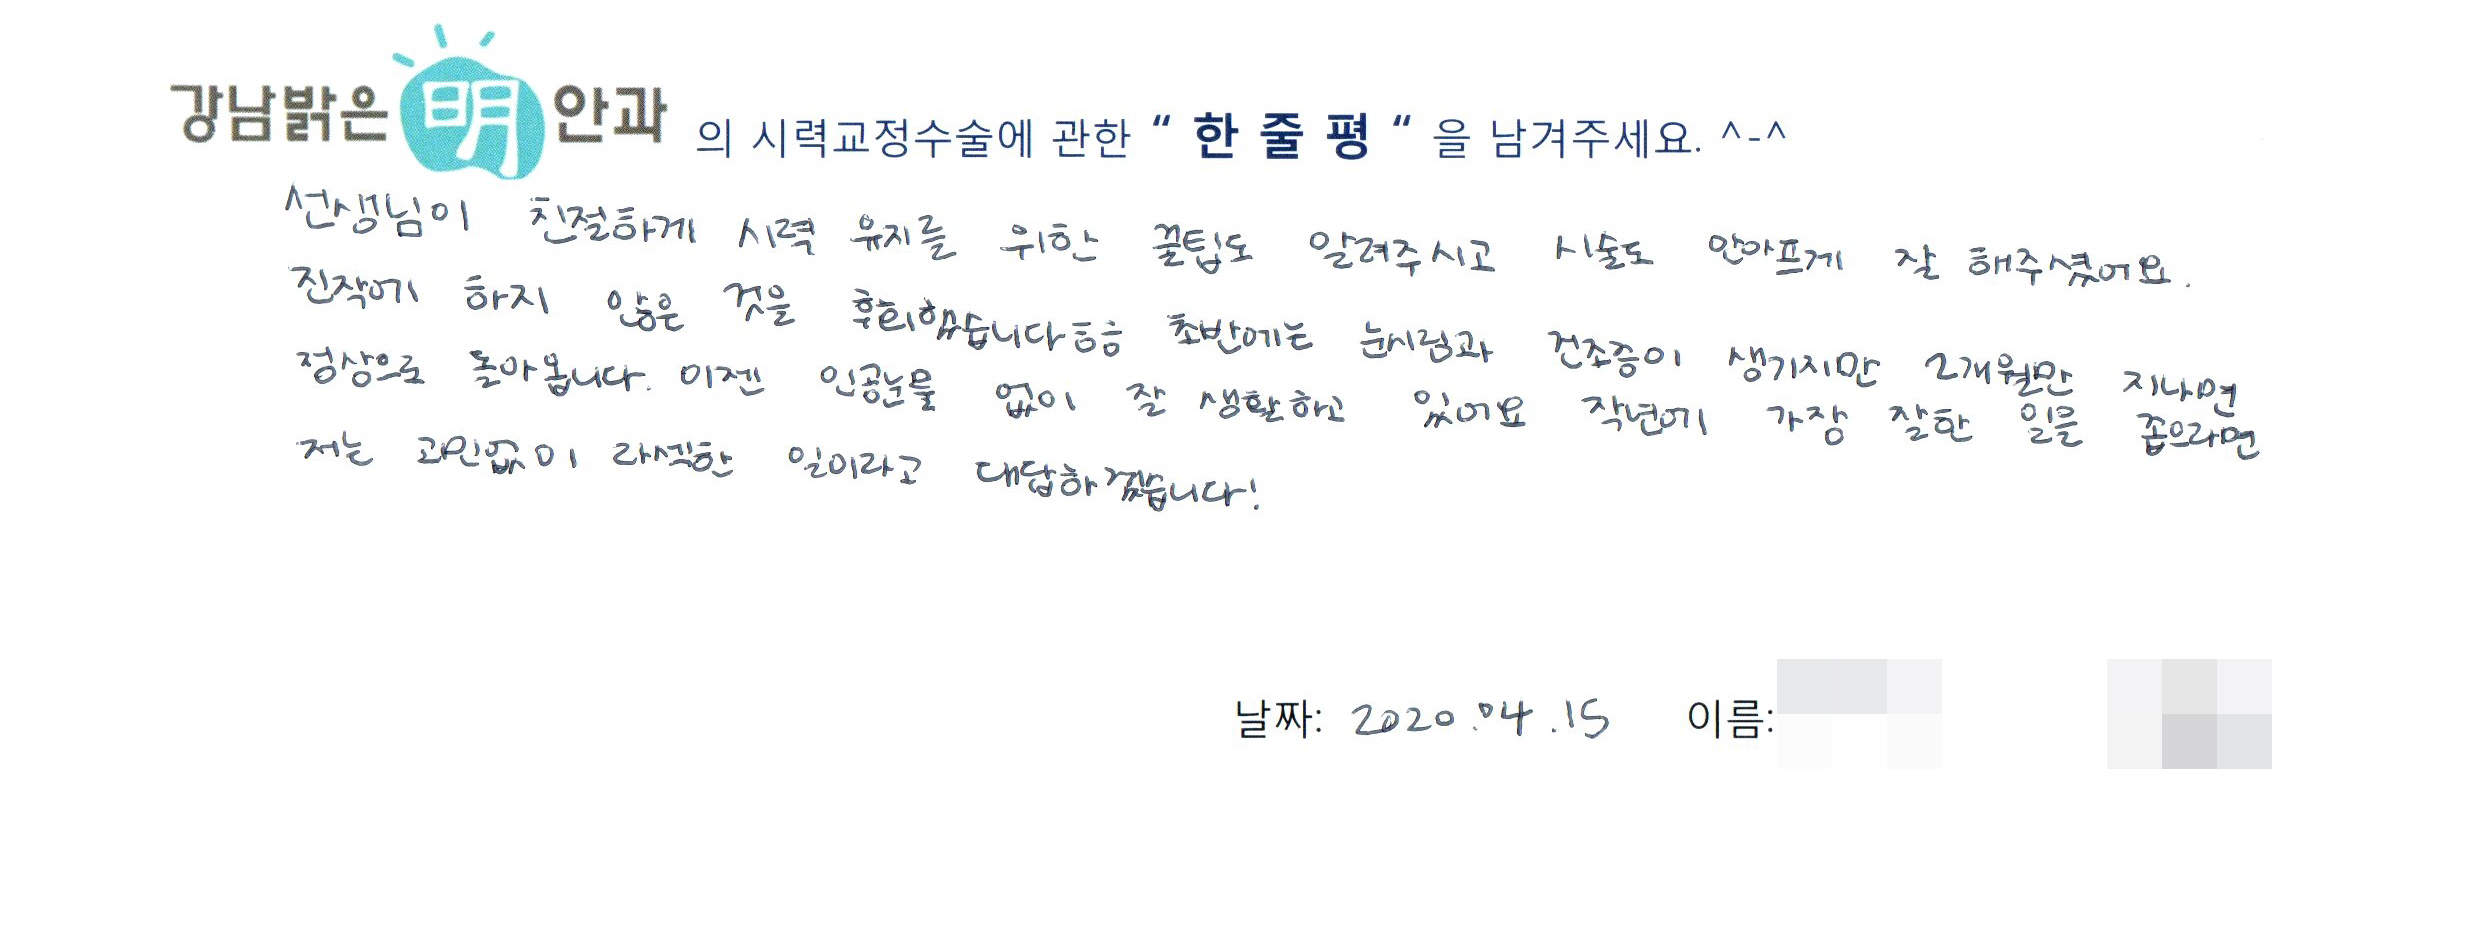 강남밝은 明 안과 의 시력교정수술에 관한 “ 한 줄 평 “ 을 남겨주세요. ^-^
선생님이 친절하게 시력 유지를 위한 꿀팁도 알려주시고 시술도 안아프게 잘 해주셨어요.
진작에 하지 않은 것을 후회했습니다ㅎㅎ 초반에는 눈시림과 건조증이 생기지만 2개월만 지나면
정상으로 돌아옵니다. 이젠 인공눈물 없이 잘 생활하고 있어요 작년에 가장 잘한 일을 꼽으라면
저는 고민없이 라섹한 일이라고 대답하겠습니다!
날짜: 2020.04.15 이름: